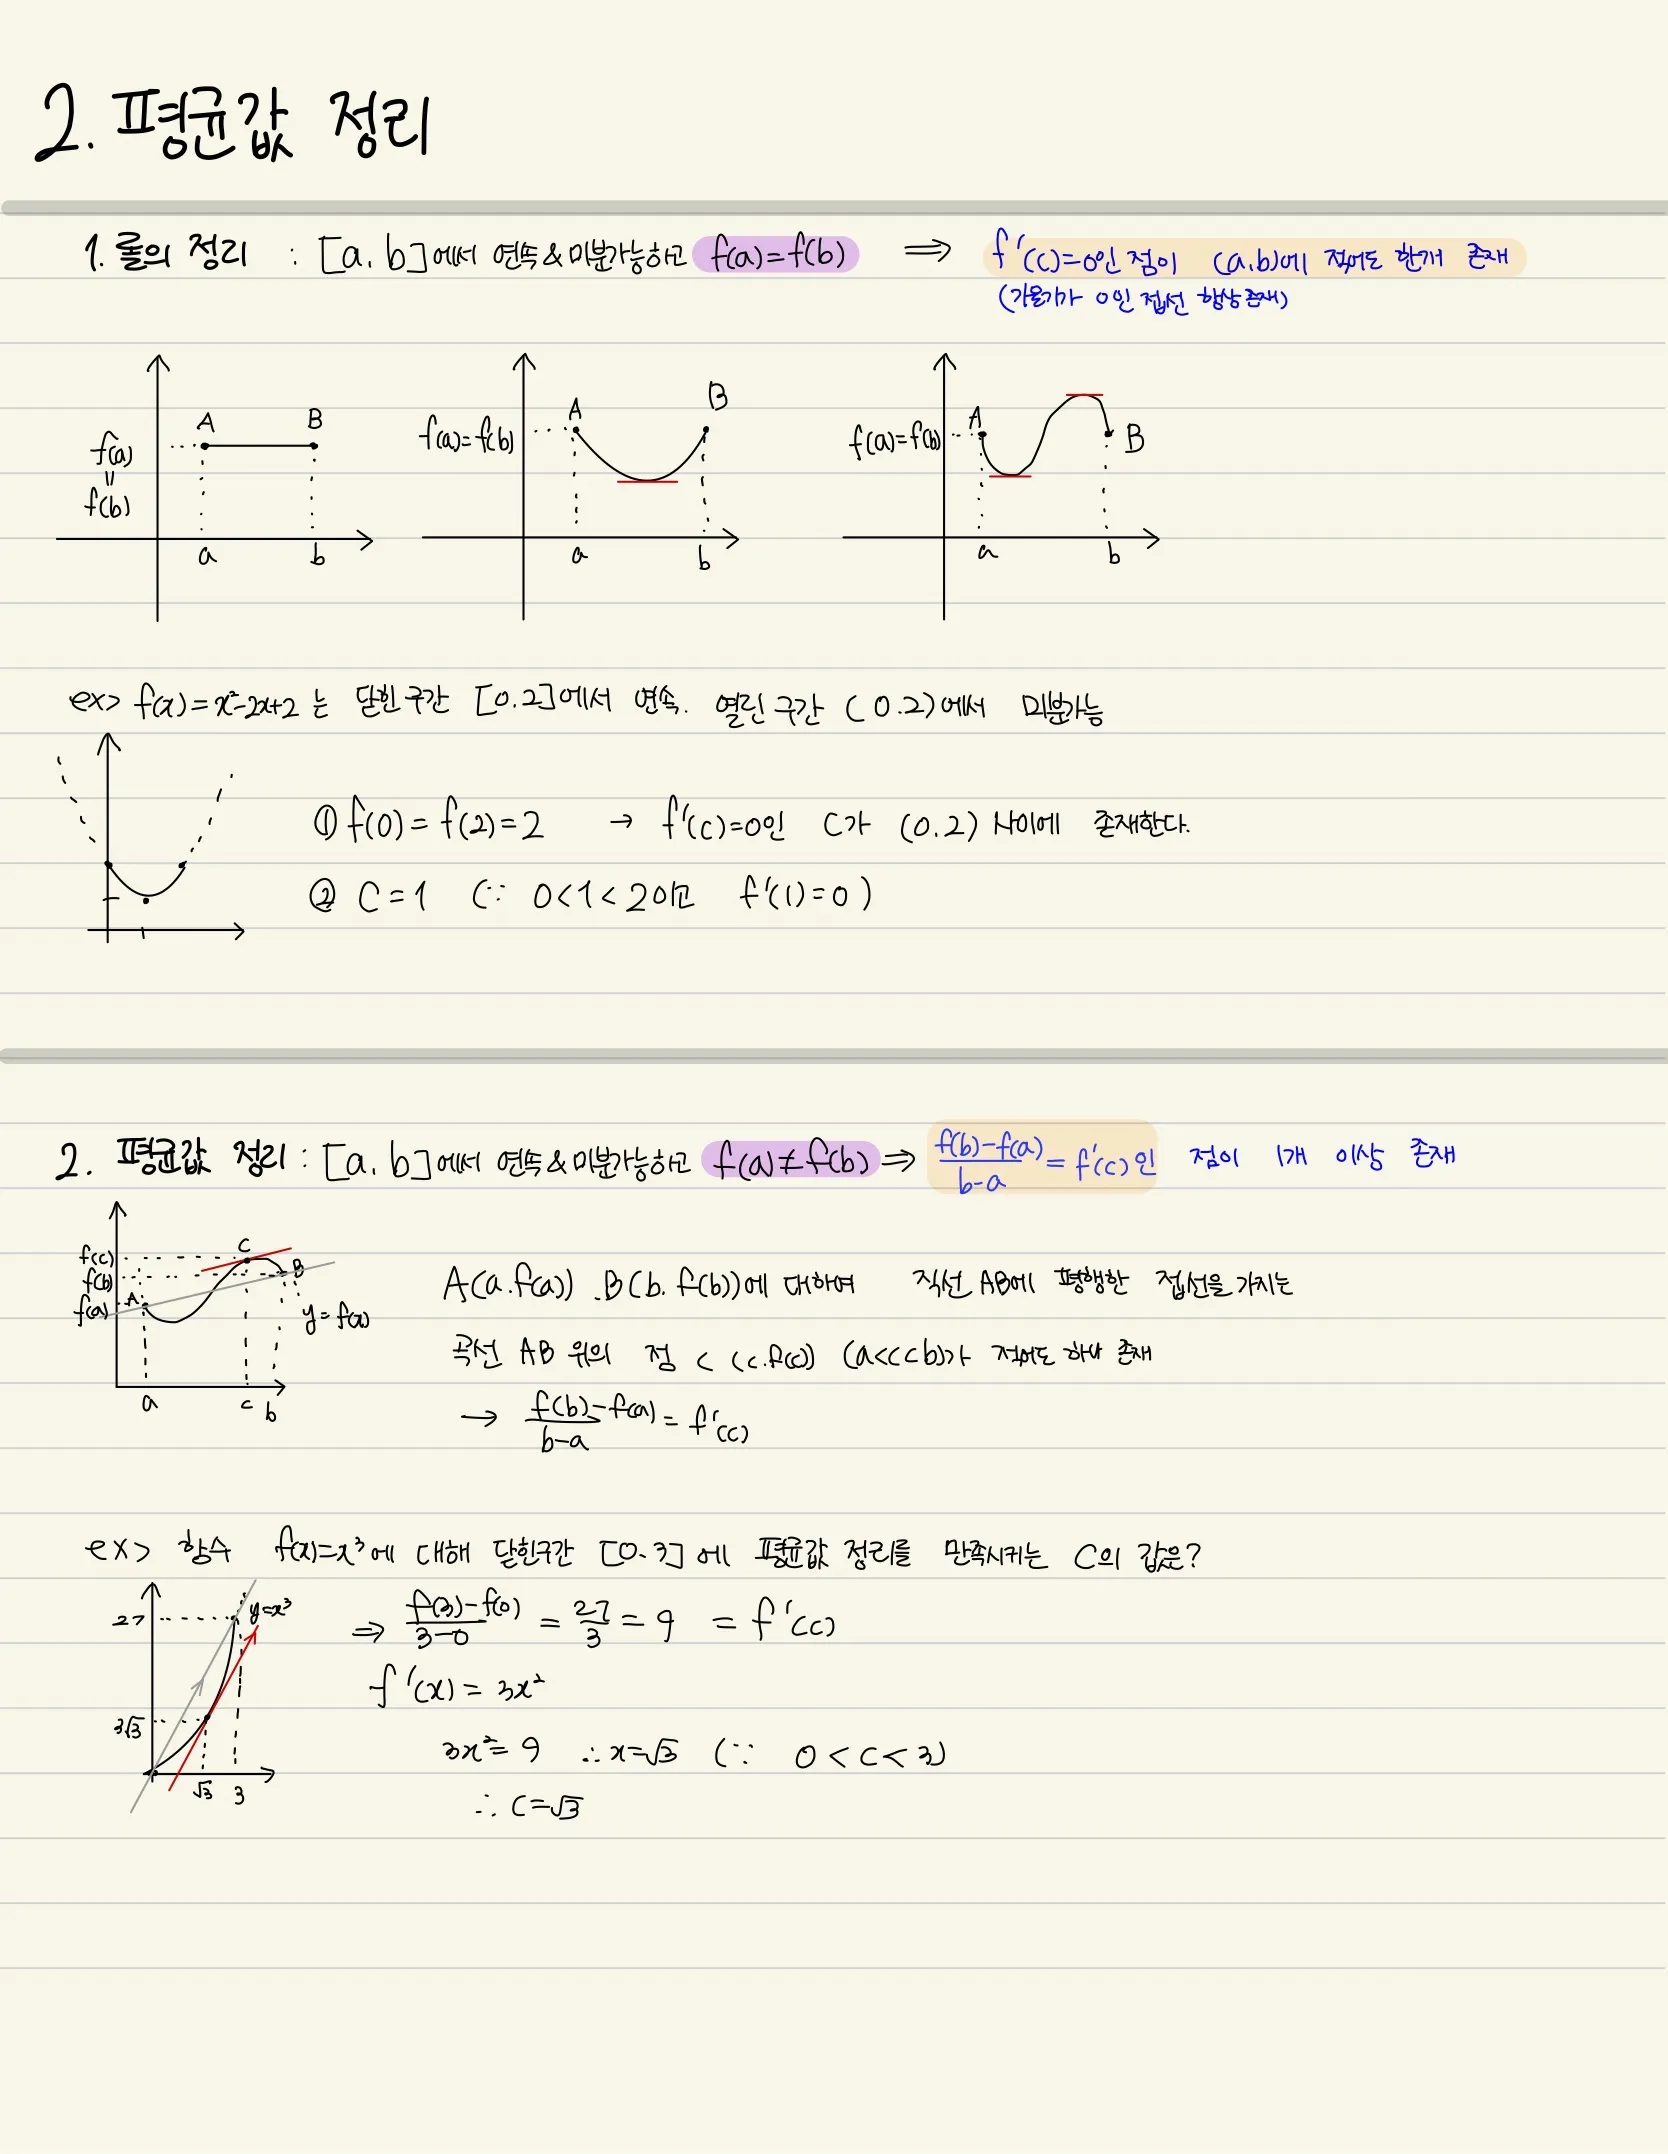 2. 평균값 정리
1. 롤의 정리 : [a, b]에서 연속&미분가능하고 f(a)=f(b) ⟹ f'(c)=0인 점이 (a,b)에 적어도 한개 존재
(기울기가 0인 접선 항상 존재)
A B
f(a)
=
f(b)
a b
A B
f(a)=f(b)
a b
A
f(a)=f(b) B
a b
ex> f(x)=x²-2x+2 는 닫힌구간 [0.2]에서 연속. 열린구간 (0.2)에서 미분가능
① f(0)=f(2)=2 → f'(c)=0인 C가 (0.2) 사이에 존재한다.
② C=1 (∵ 0<1<2이고 f'(1)=0)
1
2. 평균값 정리 : [a, b]에서 연속&미분가능하고 f(a)≠f(b) ⟹ f(b)-f(a)/b-a = f'(c)인 점이 1개 이상 존재
C
f(c)
f(b) B
f(a) A
y=f(x)
a c b
A(a.f(a)) .B(b.f(b))에 대하여 직선 AB에 평행한 접선을 가지는
곡선 AB 위의 점 C (c.f(c)) (a<c<b)가 적어도 하나 존재
→ f(b)-f(a)/b-a = f'(c)
ex> 함수 f(x)=x³에 대해 닫힌구간 [0.3]에 평균값 정리를 만족시키는 C의 값은?
27 y=x³
3√3
√3 3
⇒ f(3)-f(0)/3-0 = 27/3 = 9 = f'(c)
f'(x) = 3x²
3x²=9 ∴x=√3 (∵ 0<c<3)
∴ C=√3